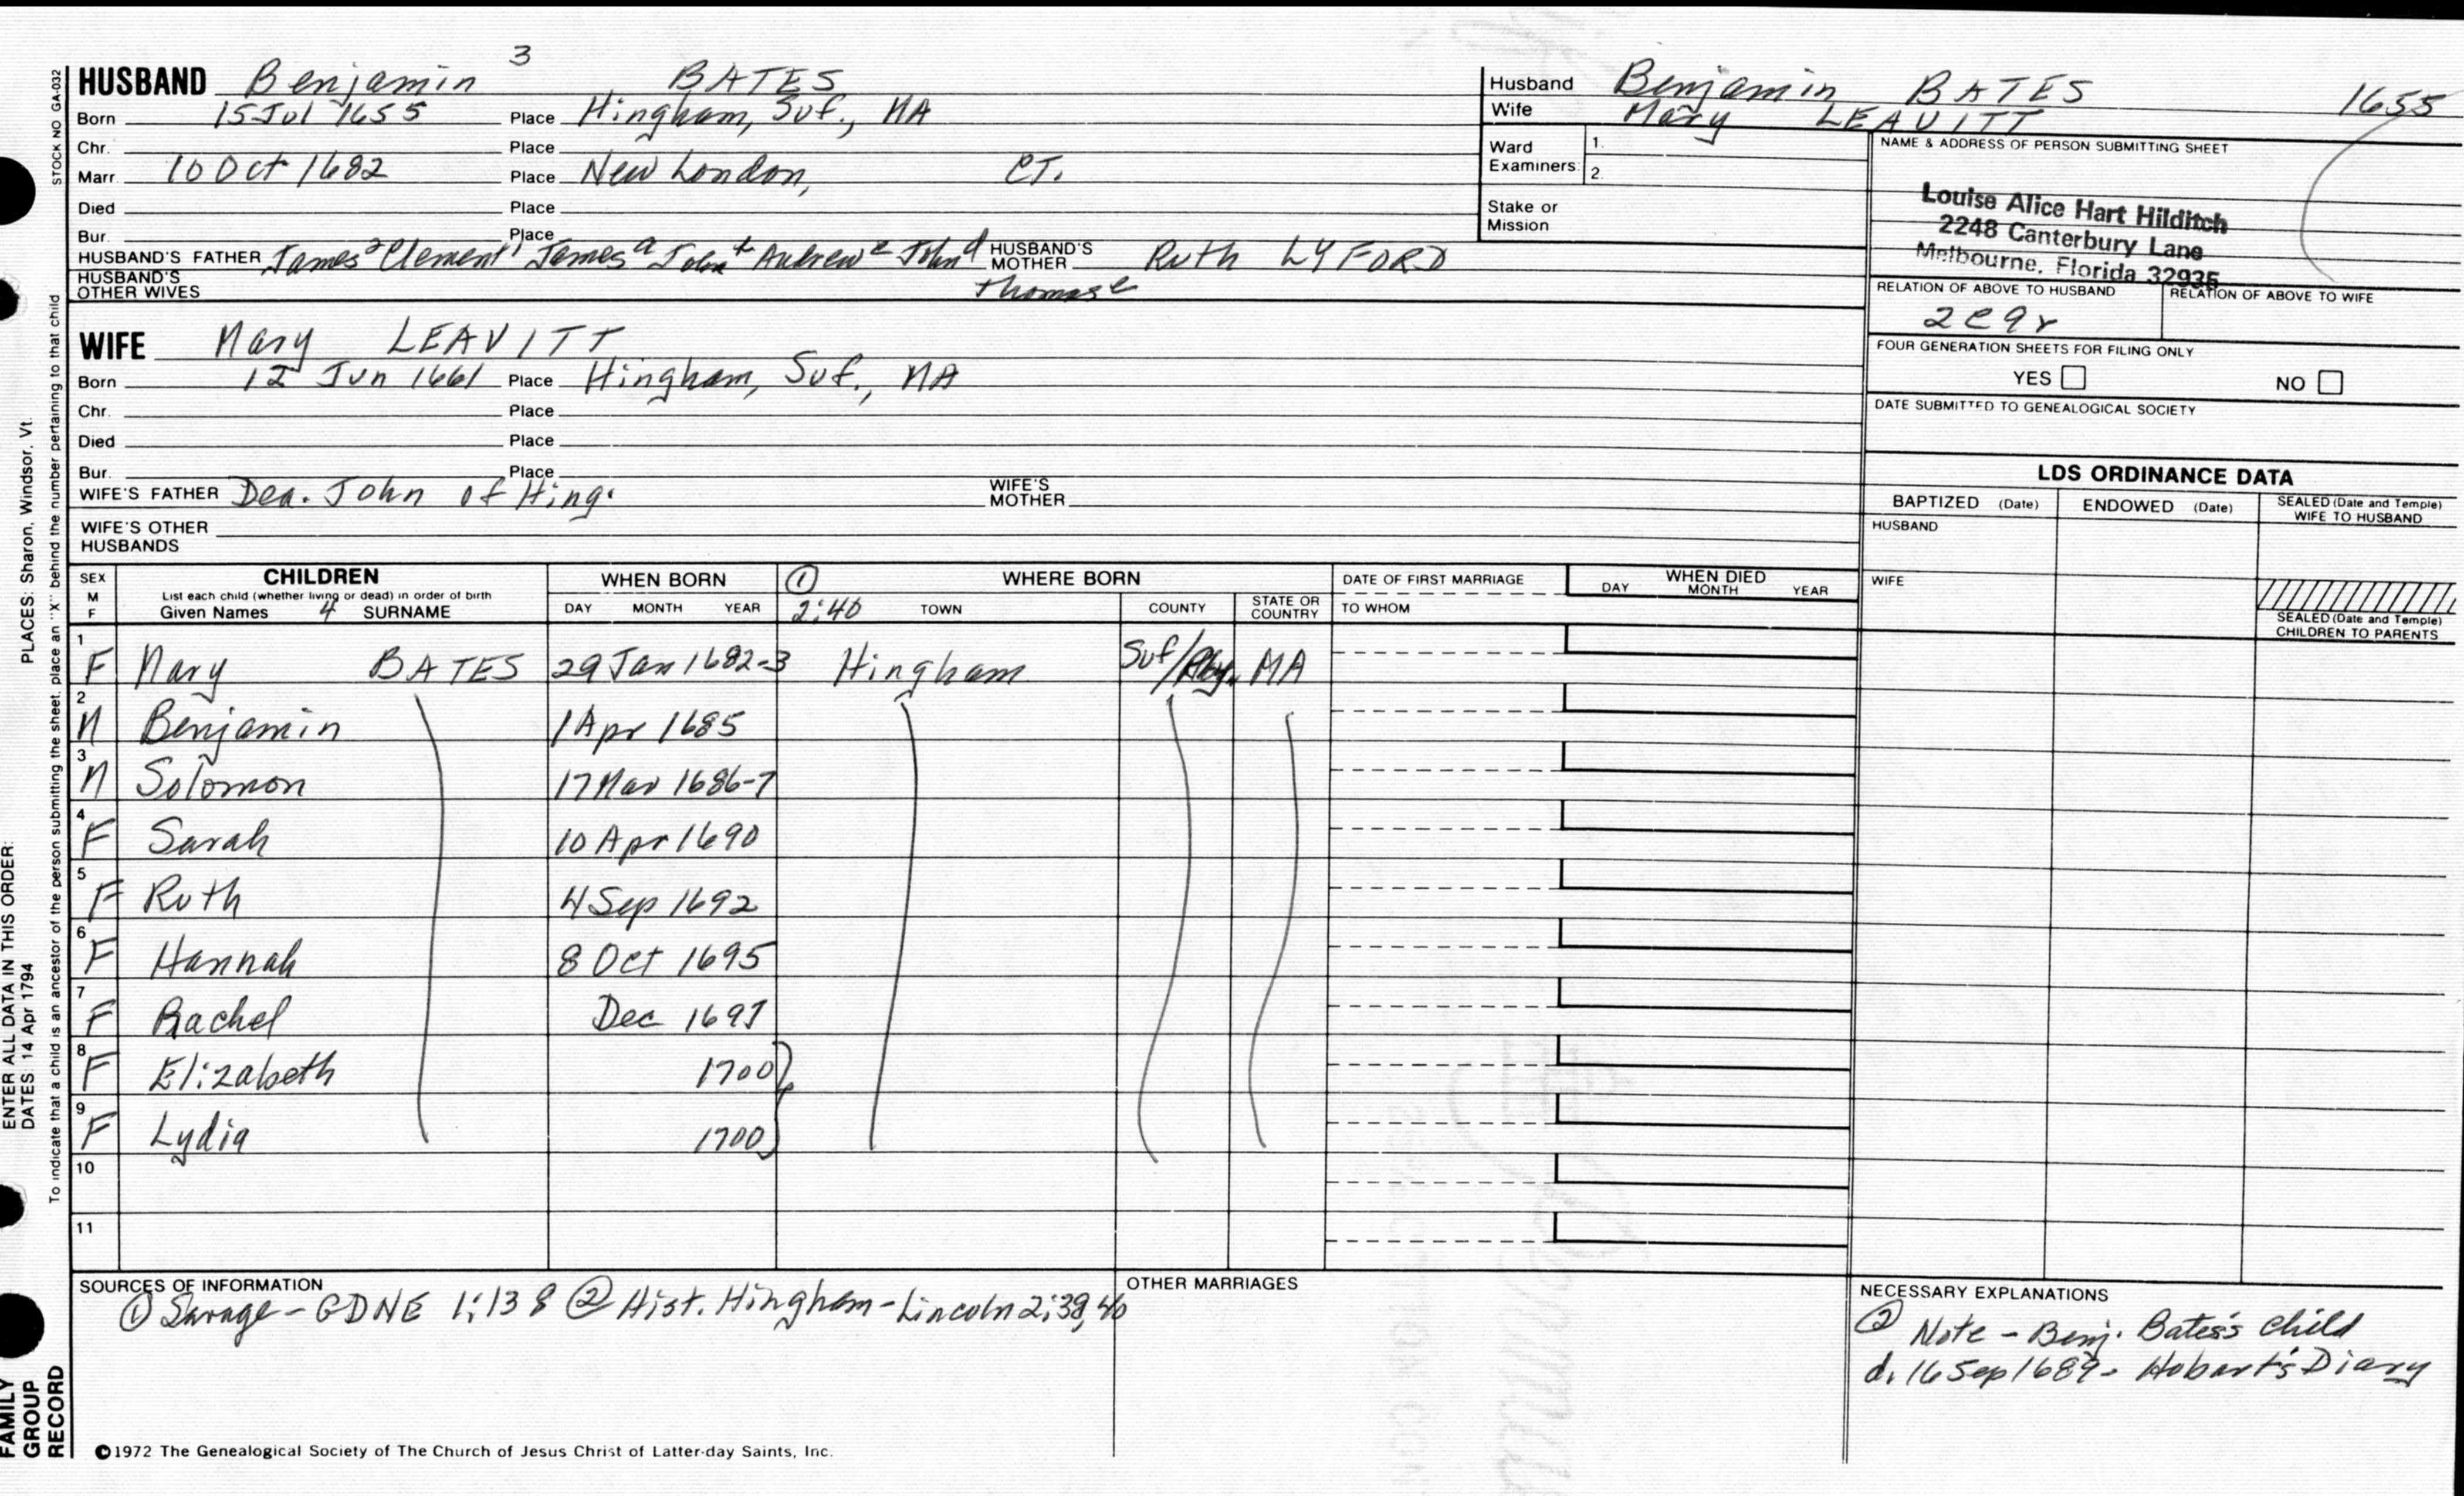 3
HUSBAND Benjamin BATES
Born 15 Jul 1655 Place Hingham, Suf., MA
Chr. Place
Marr 10 Oct 1682 Place New London, CT.
Died Place
Bur. Place
HUSBAND'S FATHER James2 Clement1 James a John b Andrew c John d HUSBAND'S MOTHER Ruth LYFORD
Thomas e
HUSBAND'S OTHER WIVES
WIFE Mary LEAVITT
Born 12 Jun 1661 Place Hingham, Suf., MA
Chr. Place
Died Place
Bur. Place
WIFE'S FATHER Dea. John of Hing. WIFE'S MOTHER
WIFE'S OTHER HUSBANDS
Husband Benjamin BATES 1655
Wife Mary LEAVITT
Ward Examiners: 1. 2.
Stake or Mission
NAME & ADDRESS OF PERSON SUBMITTING SHEET
Louise Alice Hart Hilditch
2248 Canterbury Lane
Melbourne, Florida 32935
RELATION OF ABOVE TO HUSBAND RELATION OF ABOVE TO WIFE
FOUR GENERATION SHEETS FOR FILING ONLY
YES NO
DATE SUBMITTED TO GENEALOGICAL SOCIETY
LDS ORDINANCE DATA
BAPTIZED (Date) ENDOWED (Date) SEALED (Date and Temple) WIFE TO HUSBAND
HUSBAND
WIFE
SEALED (Date and Temple) CHILDREN TO PARENTS
SEX M F CHILDREN WHEN BORN ① WHERE BORN DATE OF FIRST MARRIAGE WHEN DIED
List each child (whether living or dead) in order of birth
Given Names 4 SURNAME DAY MONTH YEAR 2:40 TOWN COUNTY STATE OR COUNTRY TO WHOM DAY MONTH YEAR
1 F Mary BATES 29 Jan 1682-3 Hingham Suf/ MA
2 M Benjamin 1 Apr 1685
3 M Solomon 17 Mar 1686-7
4 F Sarah 10 Apr 1690
5 F Ruth 4 Sep 1692
6 F Hannah 8 Oct 1695
7 F Rachel Dec 1697
8 F Elizabeth 1700
9 F Lydia 1700
10
11
SOURCES OF INFORMATION
① Savage - GDNE 1:138 ② Hist. Hingham - Lincoln 2:39,40
OTHER MARRIAGES
NECESSARY EXPLANATIONS
② Note - Benj. Bates's child
d. 16 Sep 1689 - Hobart's Diary
©1972 The Genealogical Society of The Church of Jesus Christ of Latter-day Saints, Inc.
STOCK NO GA-032
To indicate that a child is an ancestor of the person submitting the sheet, place an "X" behind the number pertaining to that child
PLACES: Sharon, Windsor, Vt.
ENTER ALL DATA IN THIS ORDER:
DATES 14 Apr 1794
FAMILY
GROUP
RECORD